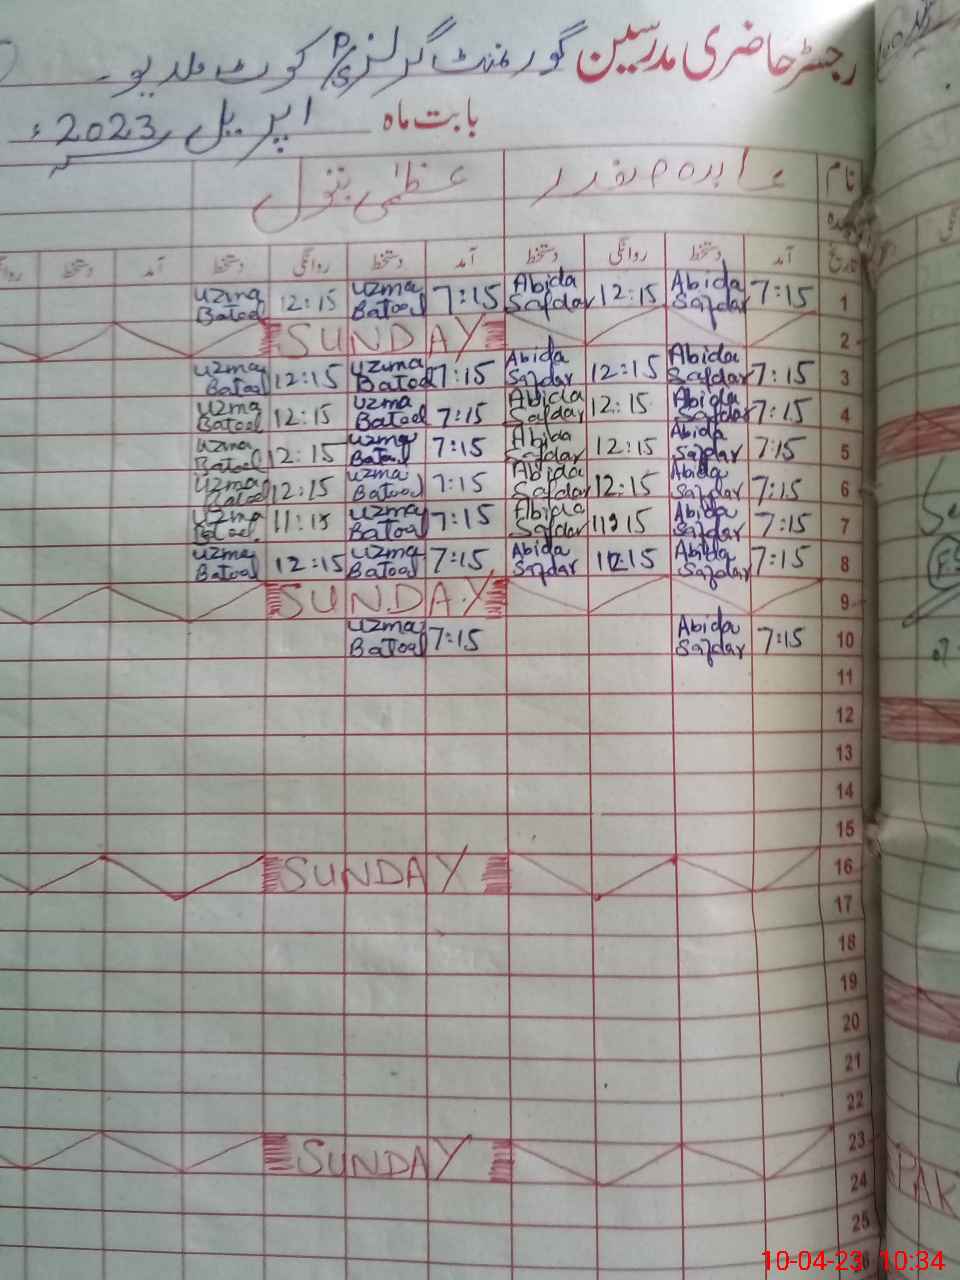 رجسٹر حاضری مدرسین گورنمنٹ گرلز P/S کوٹ ملدیو
بابت ماہ اپریل 2023ء
نام عابدہ صفدر عظمیٰ بتول
تاریخ آمد دستخط روانگی دستخط آمد دستخط روانگی دستخط آمد دستخط
1 7:15 Abida Safdar 12:15 Abida Safdar 7:15 Uzma Batool 12:15 Uzma Batool
2 SUNDAY
3 7:15 Abida Safdar 12:15 Abida Safdar 7:15 Uzma Batool 12:15 Uzma Batool
4 7:15 Abida Safdar 12:15 Abida Safdar 7:15 Uzma Batool 12:15 Uzma Batool
5 7:15 Abida Safdar 12:15 Abida Safdar 7:15 Uzma Batool 12:15 Uzma Batool
6 7:15 Abida Safdar 12:15 Abida Safdar 7:15 Uzma Batool 12:15 Uzma Batool
7 7:15 Abida Safdar 11:15 Abida Safdar 7:15 Uzma Batool 11:15 Uzma Batool
8 7:15 Abida Safdar 12:15 Abida Safdar 7:15 Uzma Batool 12:15 Uzma Batool
9 SUNDAY
10 7:15 Abida Safdar 7:15 Uzma Batool
11
12
13
14
15
16 SUNDAY
17
18
19
20
21
22
23 SUNDAY
24
25
PAK
10-04-23 10:34